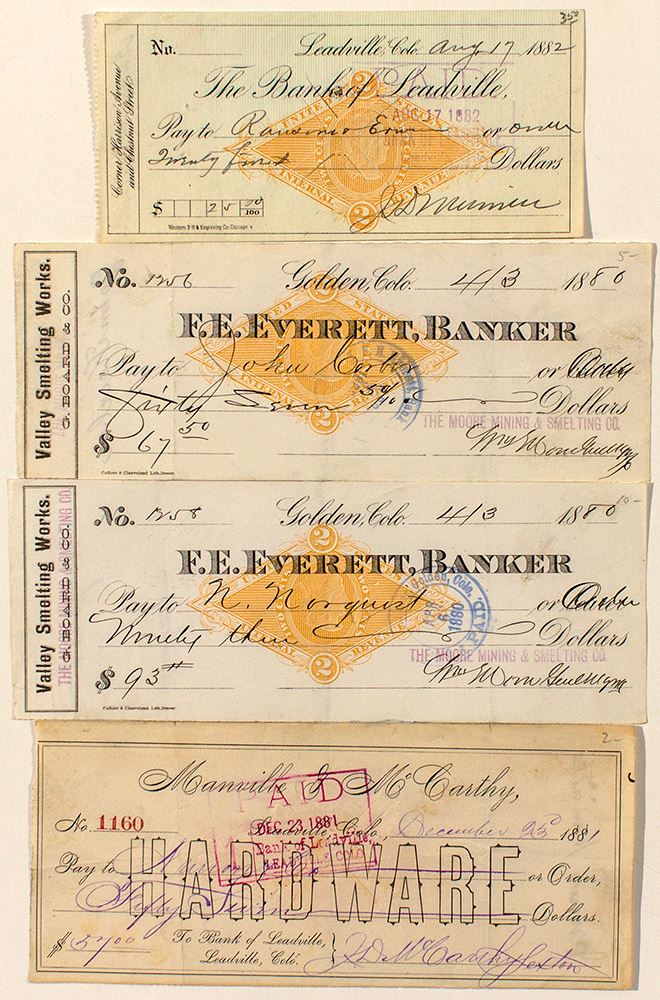 3.50
No. Leadville, Colo. Aug 17 1882
The Bank of Leadville,
PAID
AUG 17 1882
Pay to or order
Dollars
$ 25 00/100
Corner Harrison Avenue
and Chestnut Street
UNITED STATES
INTERNAL REVENUE
2
2
Western B N & Engraving Co. Chicago.
5-
Valley Smelting Works.
G. BOARD & CO.
No. 1256 Golden, Colo. 4/3 1880
F. E. EVERETT, BANKER
Pay to John or Order
Sixty Seven 50/100 Dollars
THE MOORE MINING & SMELTING CO.
$ 67 50
UNITED STATES
INTERNAL REVENUE
2
2
Collier & Cleaveland Lith. Denver
10-
Valley Smelting Works.
G. BOARD & CO.
No. 1258 Golden, Colo. 4/3 1880
F. E. EVERETT, BANKER
Golden, Colo.
APR 6 1880
PAID
Pay to N. Norquist or Order
Ninety three Dollars
THE MOORE MINING & SMELTING CO.
$ 93
2
2
Collier & Cleaveland Lith. Denver
2-
Manville & McCarthy,
PAID
DEC 23 1881
Bank of Leadville,
LEADVILLE, COLO.
No. 1160 Leadville, Colo., December 23d 1881
HARDWARE
Pay to or Order,
Fifty Seven Dollars.
$ 57.00 To Bank of Leadville,
Leadville, Colo.